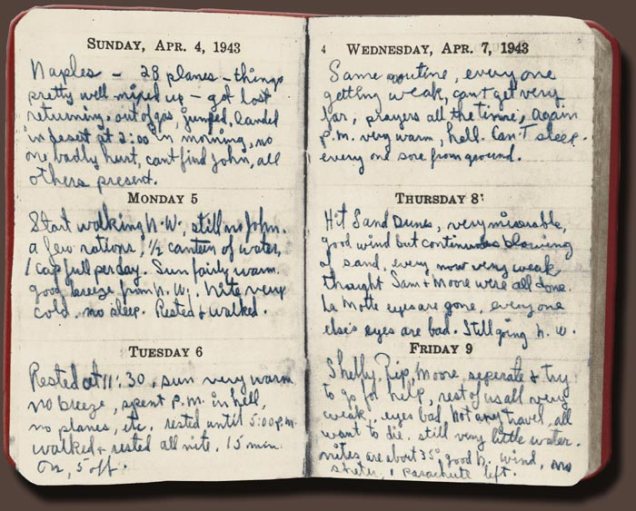 SUNDAY, APR. 4, 1943
Naples - 28 planes - things
pretty well mixed up - got lost
returning, out of gas, jumped, landed
in desert at 2:00 in morning, no
one badly hurt, cant find John, all
others present.
MONDAY 5
Start walking N.W., still no John.
a few rations, 1/2 canteen of water,
1 cap full per day. Sun fairly warm.
good breeze from N.W. Nite very
cold. no sleep. Rested & walked.
TUESDAY 6
Rested at 11:30, sun very warm
no breeze, spent P.M. in hell,
no planes, etc. rested until 5:00 p.m.
walked & rested all nite. 15 min
on, 5 off.
4 WEDNESDAY, APR. 7, 1943
Same routine, everyone
getting weak, cant get very
far, prayers all the time, again
p.m. very warm, hell. Can't sleep.
every one sore from ground.
THURSDAY 8
Hit Sand Dunes, very miserable,
good wind but continuous blowing
of sand, every now very weak,
thought Sam & Moore were all done.
La Motte eyes are gone, everyone
else's eyes are bad. Still going N.W.
FRIDAY 9
Shelly, Rip, Moore, seperate & try
to go for help, rest of us all very
weak, eyes bad, not any travel, all
want to die. still very little water.
nites are about 35° good N. wind, no
shelter, 1 parachute left.